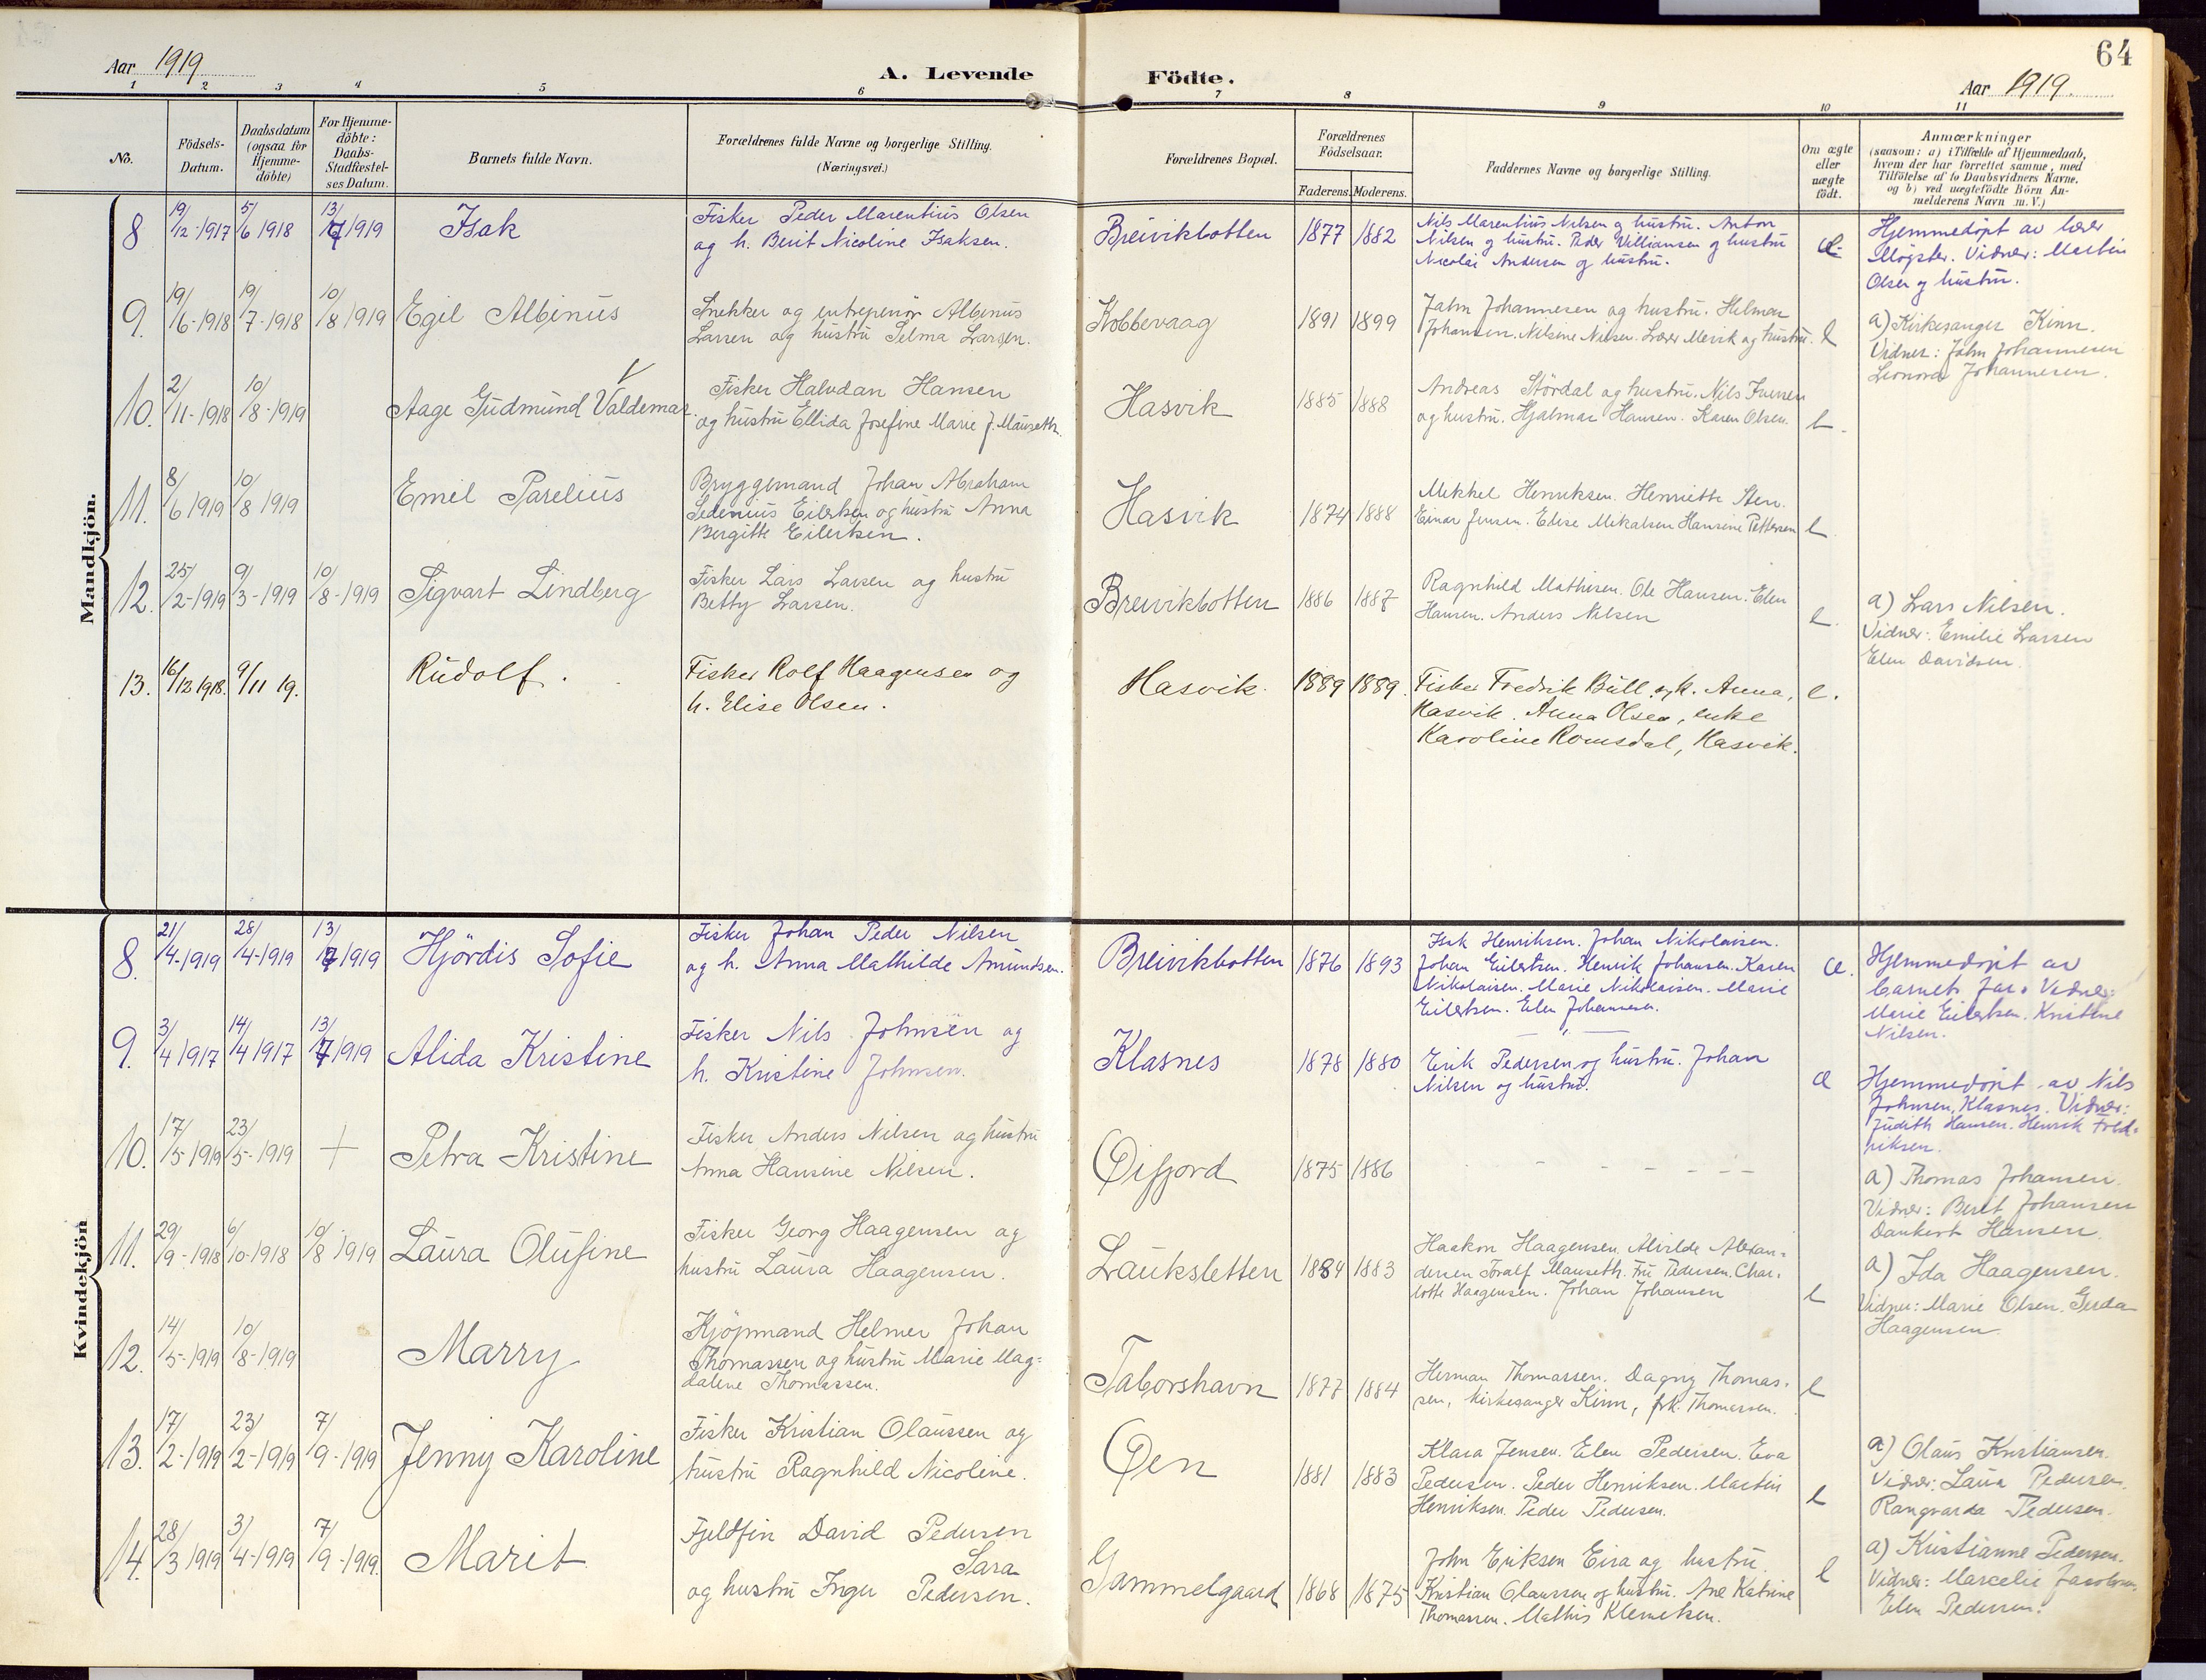 64
Aar 1919
A. Levende Födte.
Aar 1919.
1 2 3 4 5 6 7 8 9 10 11
No.
Födsels-
Datum.
Daabsdatum
(ogsaa for
Hjemme-
döbte)
For Hjemme-
döbte:
Daabs-
Stadfæstel-
ses Datum.
Barnets fulde Navn.
Forældrenes fulde Navne og borgerlige Stilling.
(Næringsvei.)
Forældrenes Bopæl.
Forældrenes
Födselsaar.
Faderens. Moderens.
Faddernes Navne og borgerlige Stilling.
Om ægte
eller
uægte
födt.
Anmærkninger
(saasom: a) i Tilfælde af Hjemmedaab,
hvem der har forrettet samme, med
Tilföielse af to Daabsvidners Navne,
og b) ved uægtefödte Börn An-
melderens Navn m. V.)
Mandkjön.
8 19/12-1917 5/6 1918 13/7 1919 Isak
Fisker Peder Marentius Olsen
og h. Berit Nicoline Isaksen.
Breivikbotten 1877 1882
Nils Marentius Nilsen og hustru. Anton
Nilsen og hustru. Peder Williansen og hustru
Nicolai Andersen og hustru.
e.
Hjemmedöpt av lærer
Mögster. Vidner: Martin
Olsen og hustru.
9. 19/6-1918 19/7-1918 10/8 1919 Egil Albinus
Snekker og entrepenör Albinus
Larsen og hustru Selma Larsen.
Kobbevaag 1891 1899
John Johannesen og hustru. Helmer
Johansen. Nilsine Nilsen. Lærer Mervik og hustru. e
a) Kirkesanger Kinn.
Vidner: John Johannesen
Leonora Johannesen.
10. 2/11-1918 10/8-1919 Aage Gudmund Valdemar.
Fisker Halvdan Hansen
og hustru Ellida Josefine Marie J. Mauseth.
Hasvik 1885 1888
Andreas Stördal og hustru. Nils Iversen
og hustru. Hjalmar Hansen. Karen Olsen. e.
11. 8/6 1919 10/8 1919 Emil Parelius
Bryggemand Johan Abraham
Sedenius Eilertsen og hustru Anna
Bergitte Eilertsen.
Hasvik 1874 1888
Mikkel Henriksen. Henriette Sten.
Einar Jensen. Elise Mikalsen Hansine Pettersen e.
12. 25/2-1919 9/3-1919 10/8-1919 Sigvart Lindberg
Fisker Lars Larsen og hustru
Betty Larsen.
Breivikbotten 1886 1887
Ragnhild Mathisen. Ole Hansen. Elen
Hansen. Anders Nilsen e.
a) Lars Nilsen.
Vidner: Emilie Larsen
Elen Davidsen.
13. 16/12 1918. 9/11 19. Rudolf.
Fisker Rolf Haagensen og
h. Elise Olsen.
Hasvik. 1889 1889.
Fisker Fredrik Bull og h. Anna, e.
Hasvik. Anna Olsen, enke
Karoline Romsdal, Hasvik.
Kvindekjön
8. 21/4-1919 28/4-1919 13/7 1919 Hjördis Sofie
Fisker Johan Peder Nilsen
og h. Anna Mathilde Amundsen.
Breivikbotten 1876 1893
Isak Henriksen. Johan Nikolaisen.
Johan Eilertsen. Henrik Johansen. Karen
Nikolaisen. Marie Nikolaisen. Marie
Eilertsen. Elen Johannesen.
e.
Hjemmedöpt av
barnets far. Vidner:
Marie Eilertsen. Kristine
Nilsen.
9. 3/4 1917 14/4 1917 13/7 1919 Alida Kristine
Fisker Nils Johnsen og
h. Kristine Johnsen.
Klasnes 1878 1880
Erik Pedersen og hustru. Johan
Nilsen og hustru.
e
Hjemmedöpt av Nils
Johnsen, Klasnes. Vidner:
Judith Hansen. Henrik Fred-
riksen.
10. 17/5-1919 23/5-1919 + Petra Kristine
Fisker Anders Nilsen og hustru
Anna Hansine Nilsen.
Öifjord 1875 1886 - - - - - -
a) Thomas Johansen.
Vidner: Berit Johansen
Dankert Hansen.
11. 29/9-1918 6/10-1918 10/8 1919 Laura Olufine
Fisker Georg Haagensen og
hustru Laura Haagensen.
Lauksletten 1884 1883
Haakon Haagensen. Alvilde Alexan-
dersen Toralf Mauseth. Fru Pedersen. Char-
lotte Haagensen. Johan Johansen e
a) Ida Haagensen.
Vidner: Marie Olsen. Gerda
Haagensen.
12. 14/5-1919 10/8-1919 Marry
Kjöpmand Helmer Johan
Thomassen og hustru Marie Mag-
dalene Thomassen.
Taborshavn 1877 1884
Herman Thomassen. Dagny Thomas-
sen, kirkesanger Kinn, frk. Thomassen. e
13. 17/2-1919 23/2-1919 7/9-1919 Jenny Karoline
Fisker Kristian Olaussen og
hustru Ragnhild Nicoline.
Öen 1881 1883
Klara Jensen. Elen Pedersen. Eva
Pedersen. Peder Henriksen. Martin
Henriksen. Peder Pedersen. e
a) Olaus Kristiansen.
Vidner: Laura Pedersen.
Rangvarda Pedersen.
14. 28/3 1919 3/4-1919 7/9-1919. Marit
Fjeldfin David Pedersen
Sara
og hustru Inger Pedersen.
Gammelgaard 1868 1875
John Eriksen Eira og hustru.
Kristian Olaussen og hustru. Ane Katrine
Thomassen. Mathis Klemetsen.
e
a) Kristianne Pedersen.
Vidner: Marcelie Jacobsen.
Elen Pedersen.